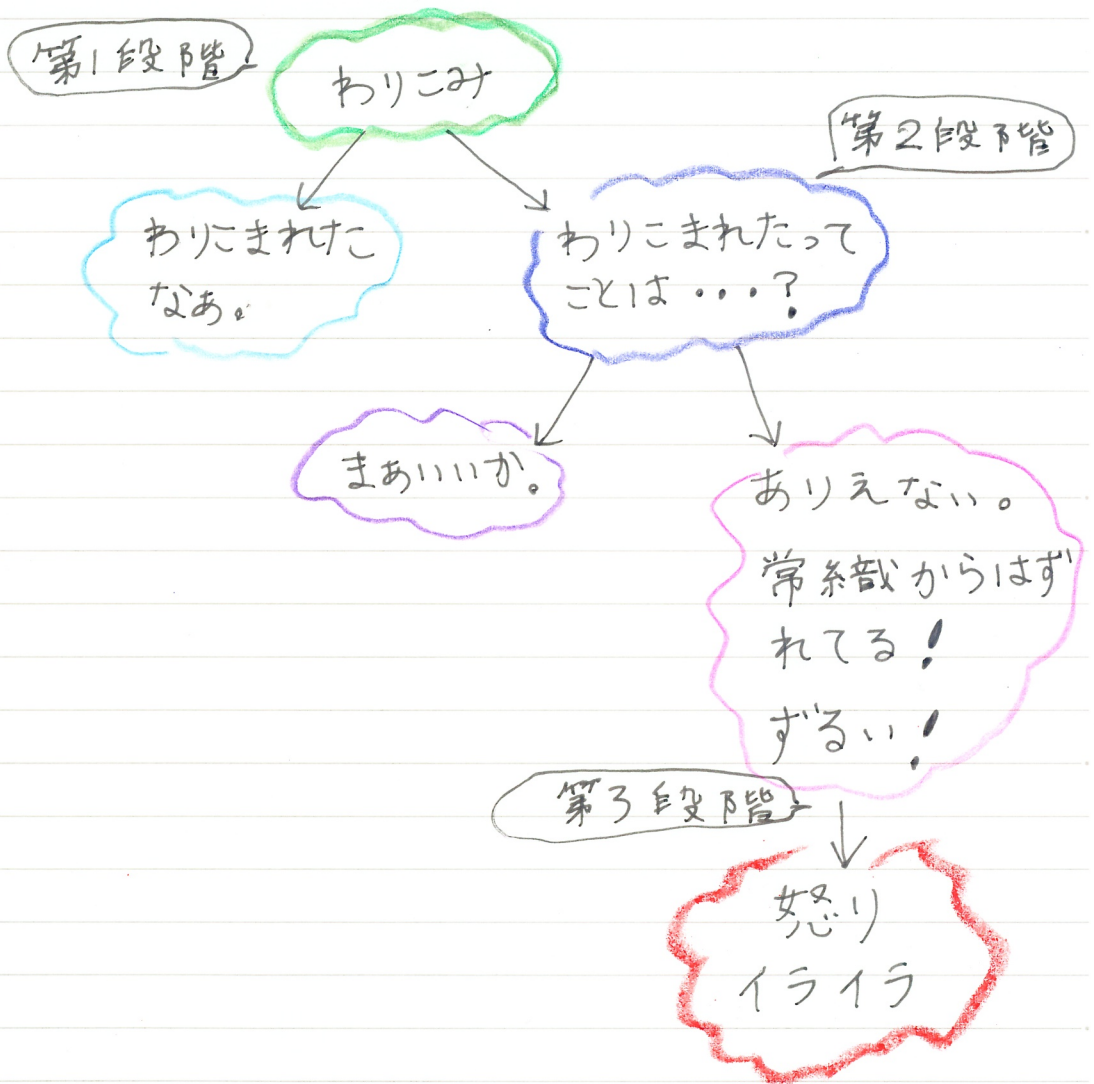 第1段階
わりこみ
第2段階
わりこまれた
なぁ。
わりこまれたって
ことは・・・?
まあいいか。
ありえない。
常織からはず
れてる!
ずるい!
第3段階
怒り
イライラ